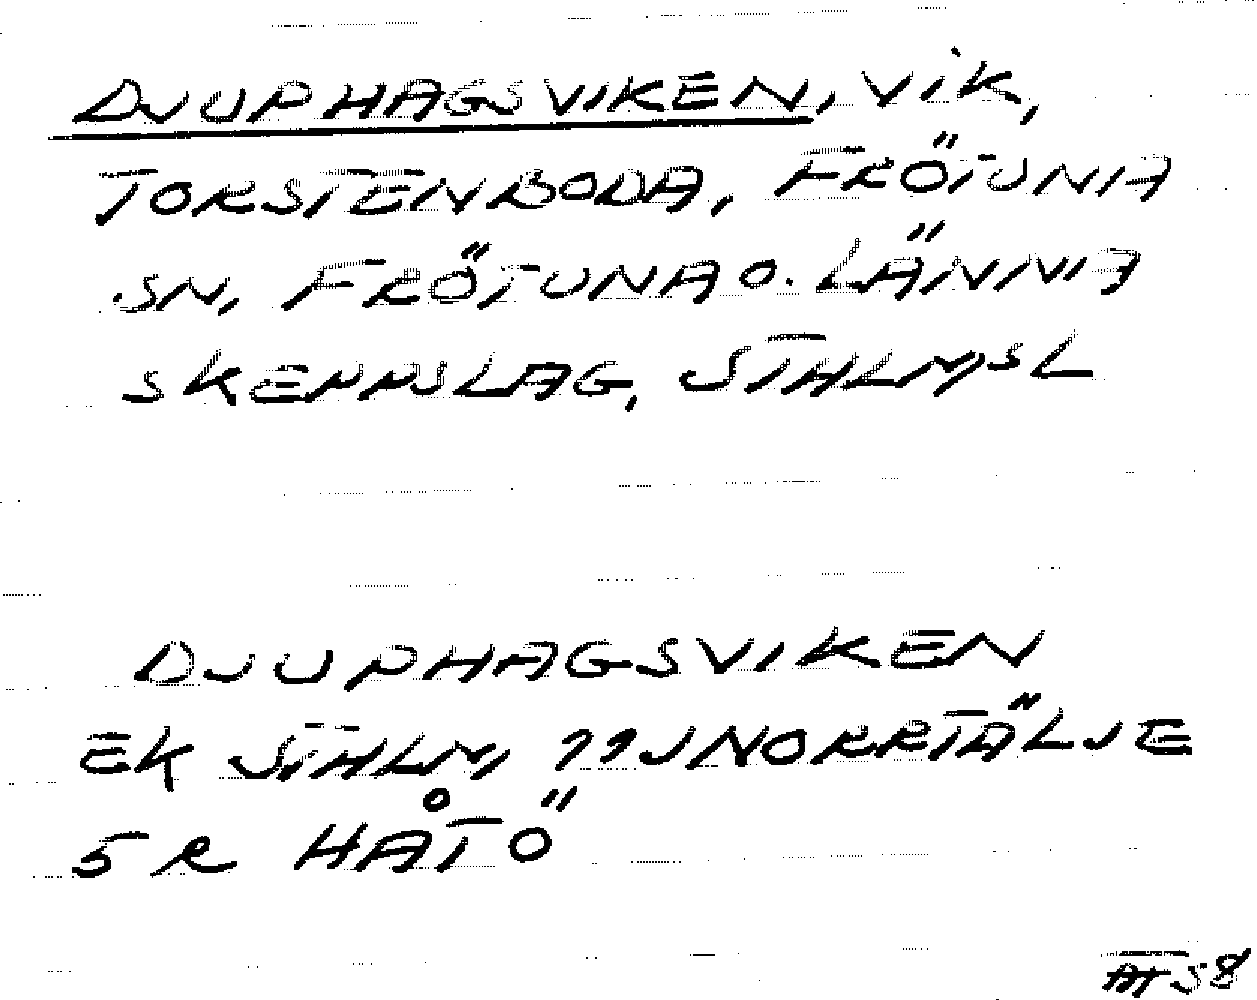 DJUPHAGSVIKEN, VIK,
TORSTENBODA, FRÖTUNA
SN, FRÖTUNA O. LÄNNA
SKEPPSLAG, STHLMSL
DJUPHAGSVIKEN
EK STHLM 11J NORRTÄLJE
5 R HÅTÖ
58